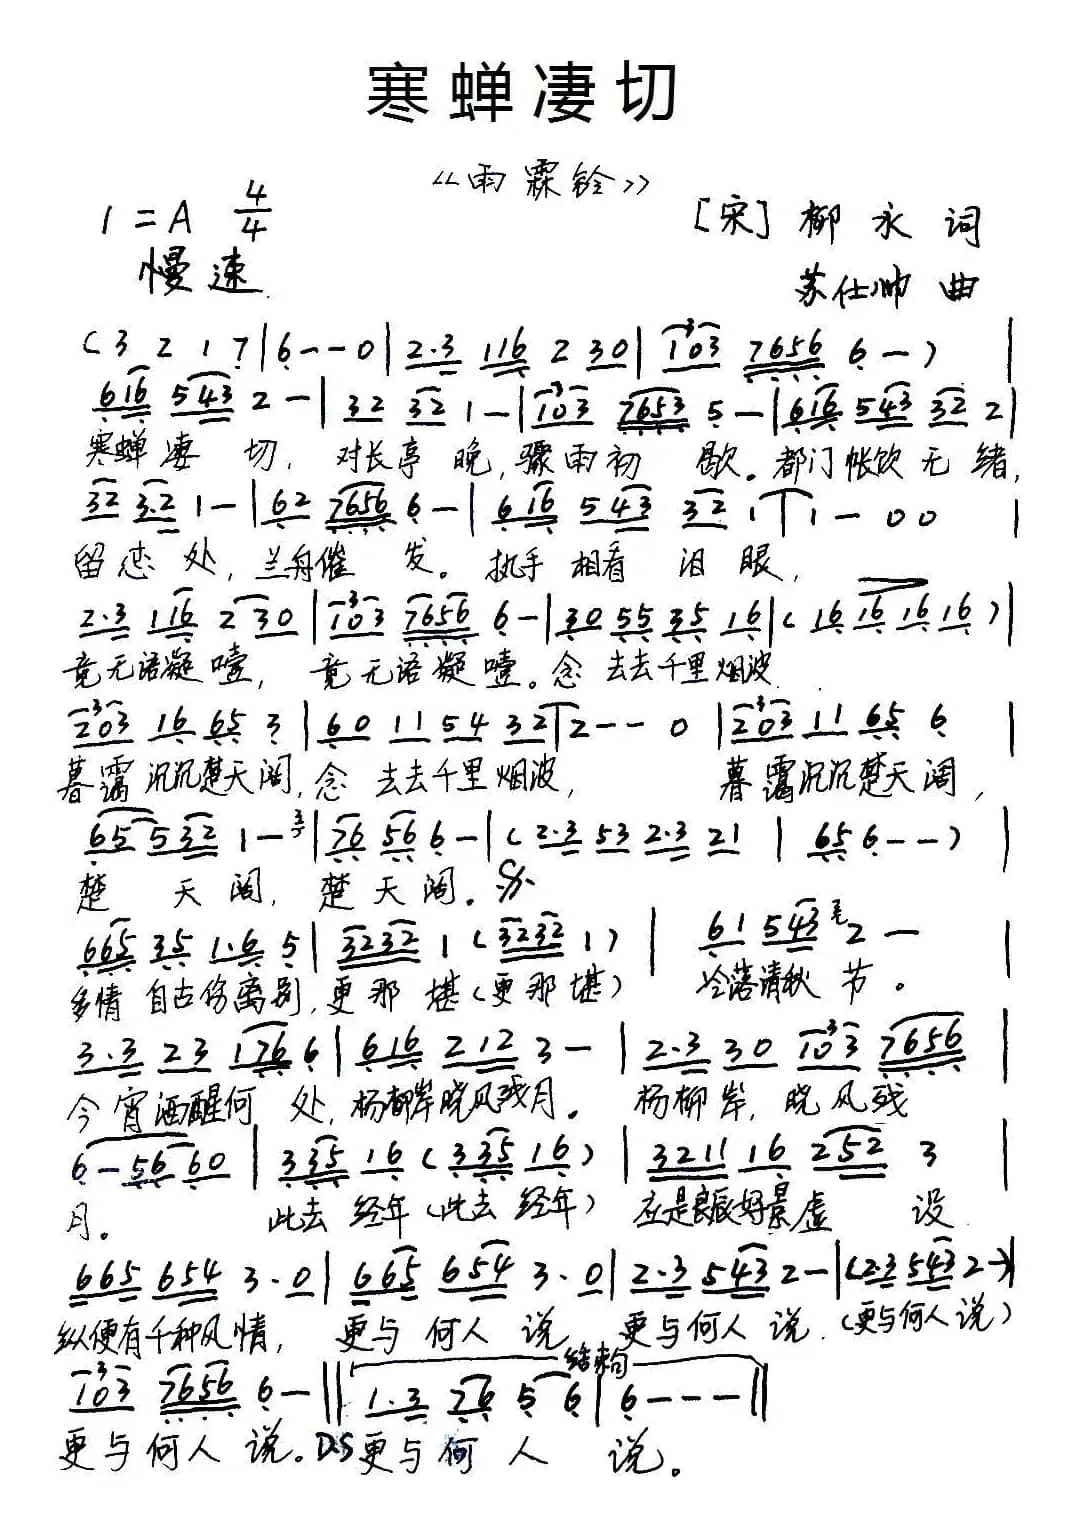 寒蝉凄切
《雨霖铃》
1=A 4/4
[宋] 柳永 词
慢速
苏仕帅 曲
(3 2 1 7|6--0|2·3 116 2 30|103 7656 6-)|
616 543 2-|32 32 1-|103 7653 5-|616 543 32 2|
寒蝉凄切,对长亭晚,骤雨初歇。都门帐饮无绪,
32 3·2 1-|62 7656 6-|616 543 32 1|1-00|
留恋处,兰舟催发。执手相看泪眼,
2·3 116 2 30|103 7656 6-|30 55 35 16|(16 16 16 16)|
竟无语凝噎,竟无语凝噎。念去去千里烟波
203 16 65 3|60 11 54 32|2--0|203 11 65 6|
暮霭沉沉楚天阔,念去去千里烟波,暮霭沉沉楚天阔,
65 532 1-|76 56 6-|(2·3 53 2·3 21|65 6--)|
楚天阔,楚天阔。
665 35 1·6 5|3232 1(3232 1)|61 543 2-
多情自古伤离别,更那堪(更那堪)冷落清秋节。
3·3 23 176 6|616 212 3-|2·3 30 103 7656|
今宵酒醒何处,杨柳岸晓风残月。杨柳岸,晓风残
6-56 60|335 16(335 16)|3211 16 252 3|
月。此去经年(此去经年)应是良辰好景虚设
665 654 3·0|665 654 3·0|2·3 543 2-|(2·3 543 2-)|
纵便有千种风情,更与何人说 更与何人说.(更与何人说)
结束句
103 7656 6-||1·3 76 5 6|6---||
更与何人说。D.S更与何人说。